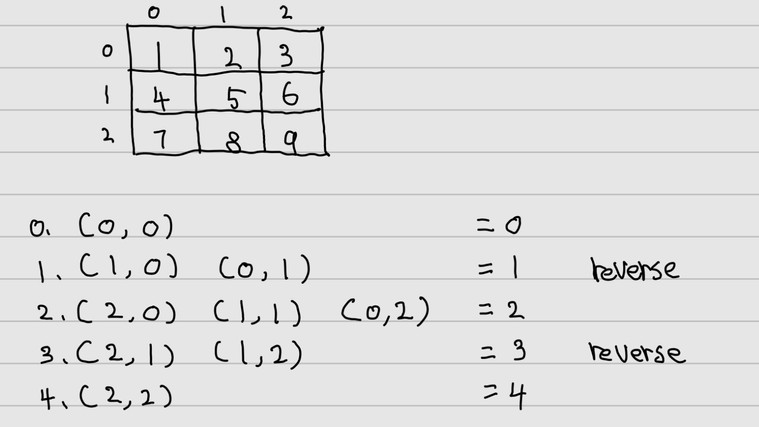 0 1 2
0 1 2 3
1 4 5 6
2 7 8 9
0. (0,0) = 0
1. (1,0) (0,1) = 1 reverse
2. (2,0) (1,1) (0,2) = 2
3. (2,1) (1,2) = 3 reverse
4. (2,2) = 4